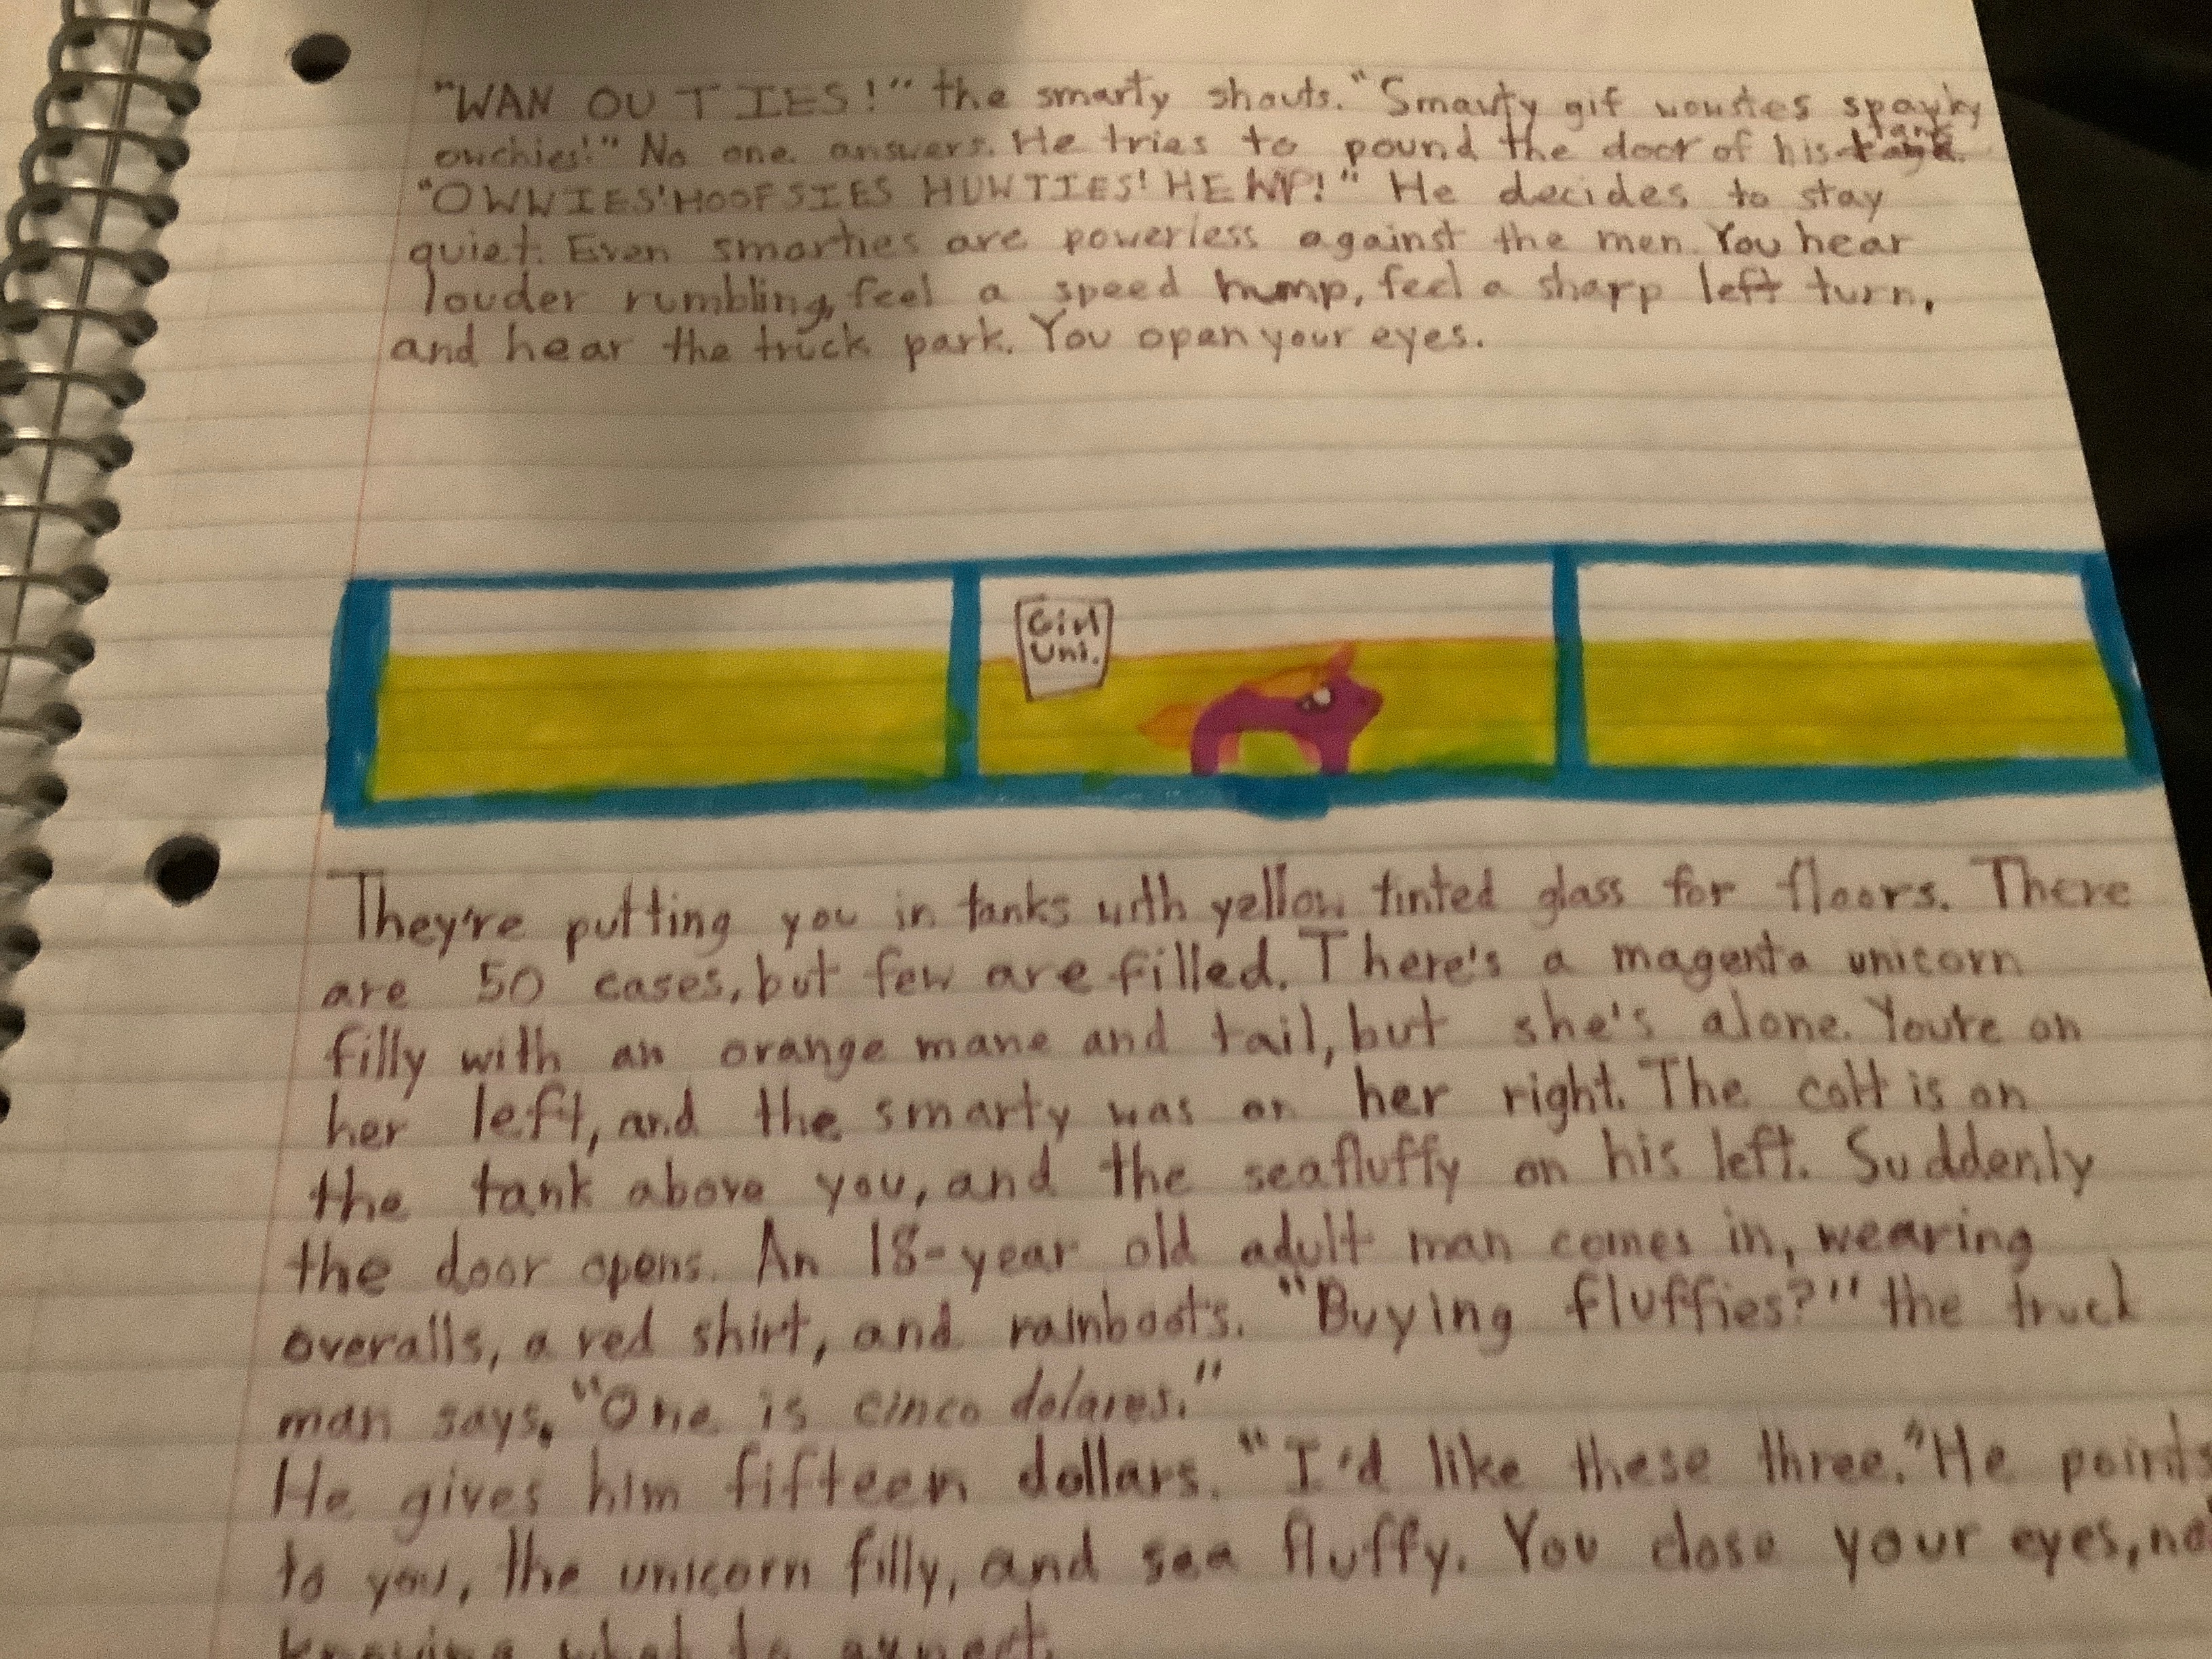 "WAN OUTIES!" the smarty shouts. "Smawty gif woustes spayky
ouchies!" No one answers. He tries to pound the door of his tank.
"OWWIES! HOOFSIES HUWTIES! HEWP!" He decides to stay
quiet. Even smarties are powerless against the men. You hear
louder rumbling, feel a speed hump, feel a sharp left turn,
and hear the truck park. You open your eyes.
Girl
Uni.
They're putting you in tanks with yellow tinted glass for floors. There
are 50 cases, but few are filled. There's a magenta unicorn
filly with an orange mane and tail, but she's alone. You're on
her left, and the smarty was on her right. The colt is on
the tank above you, and the seafluffy on his left. Suddenly
the door opens. An 18-year old adult man comes in, wearing
overalls, a red shirt, and rainboots. "Buying fluffies?" the truck
man says. "One is cinco dolares."
He gives him fifteen dollars. "I'd like these three." He points
to you, the unicorn filly, and sea fluffy. You close your eyes, not
knowing what to expect.